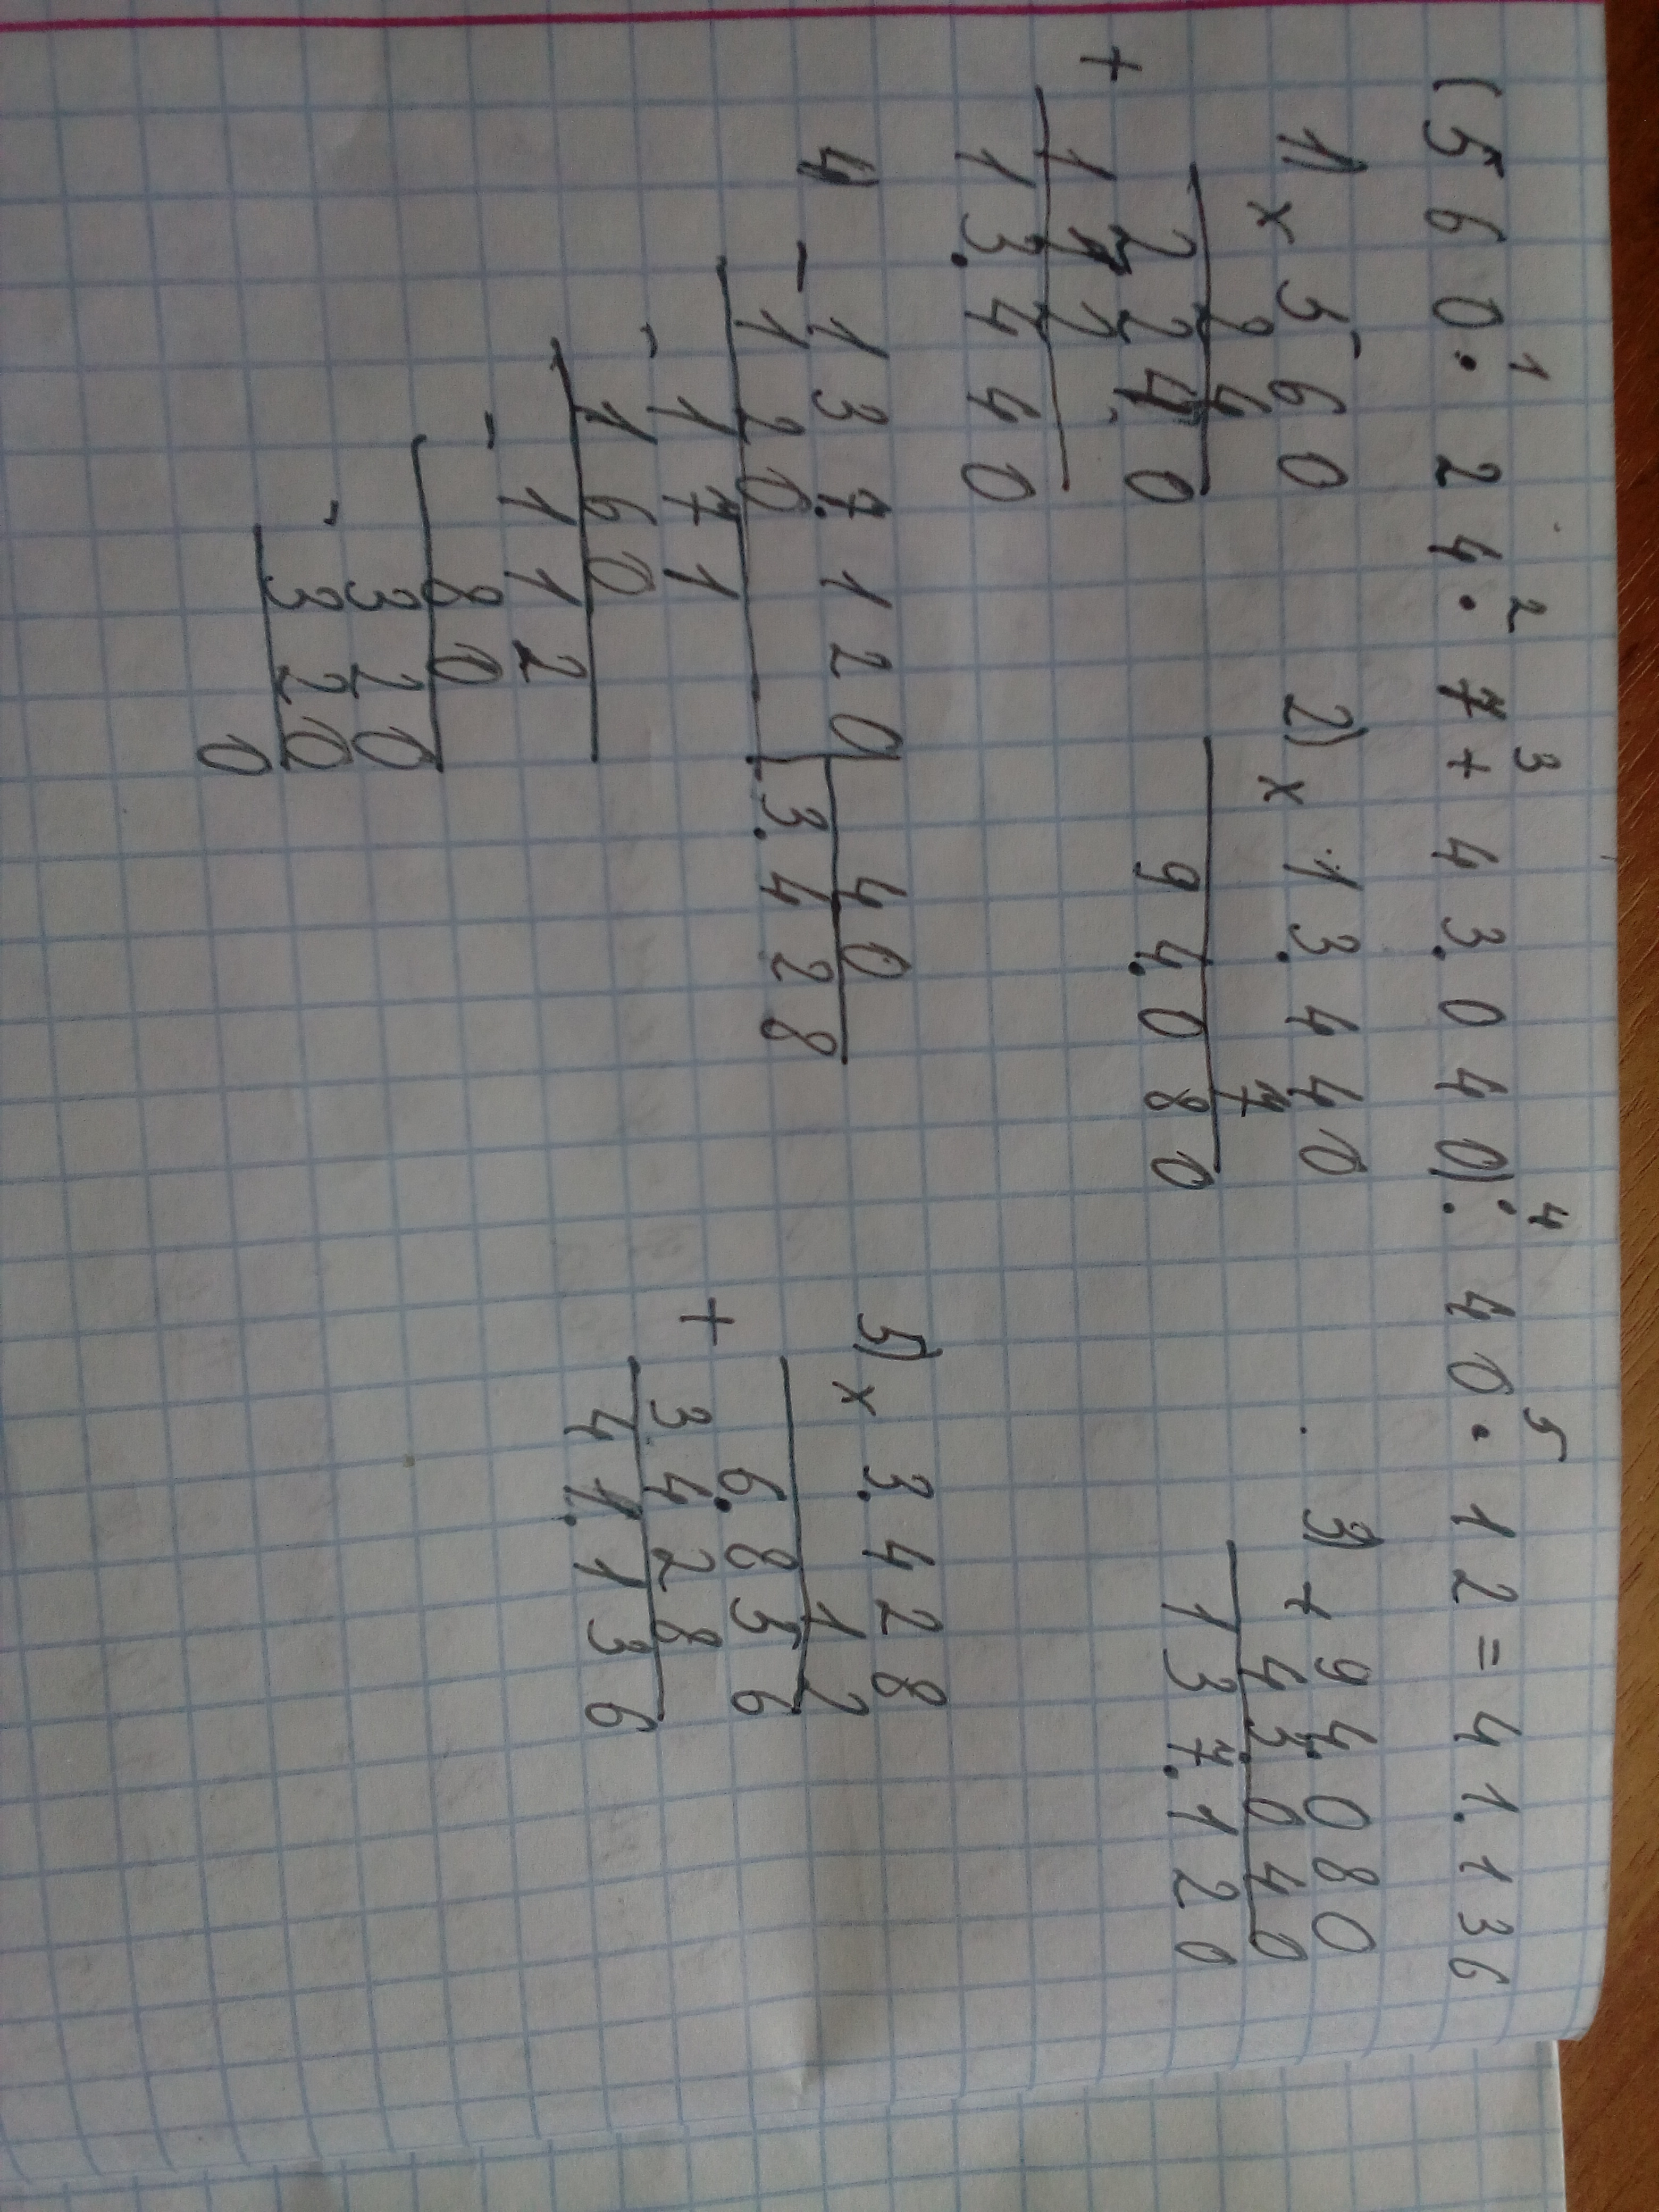 1 2 3 4 5
(560·24·7+43.040):40·12=41.136
1) × 560
24
2240
+ 112
13.440
2) × 13.440
7
94.080
3) + 94.080
43.040
137.120
4) - 137.120 40
120 3.428
- 171
160
- 112
80
- 320
320
0
5) × 3.428
12
6.856
+ 3428
41.136